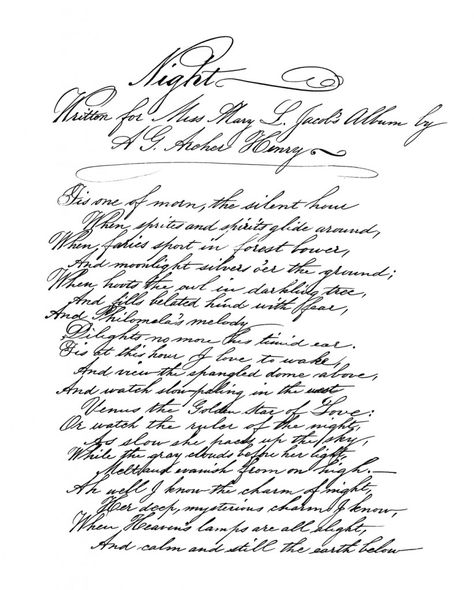 Night
Written for Miss Mary L. Jacob's Album by
A G. Archer Henry
Tis one of morn, the silent hour
When sprites and spirits glide around,
When faries sport in forest bower,
And moonlight silvers o'er the ground;
When hoots the owl in darkling tree,
And fills belated hind with fear,
And Philomela's melody
Dilights no more his timid ear.
Tis at this hour I love to wake,
And view the spangled dome above,
And watch slow-paling in the west
Venus the Golden Star of Love:
Or watch the ruler of the night,
As slow she paces up the sky,
While the gray clouds before her light,
Melt and vanish from on high.—
Ah well I know the charm of night,
Her deep, mysterious charm I know,
When Heaven's lamps are all alight,
And calm and still the earth below